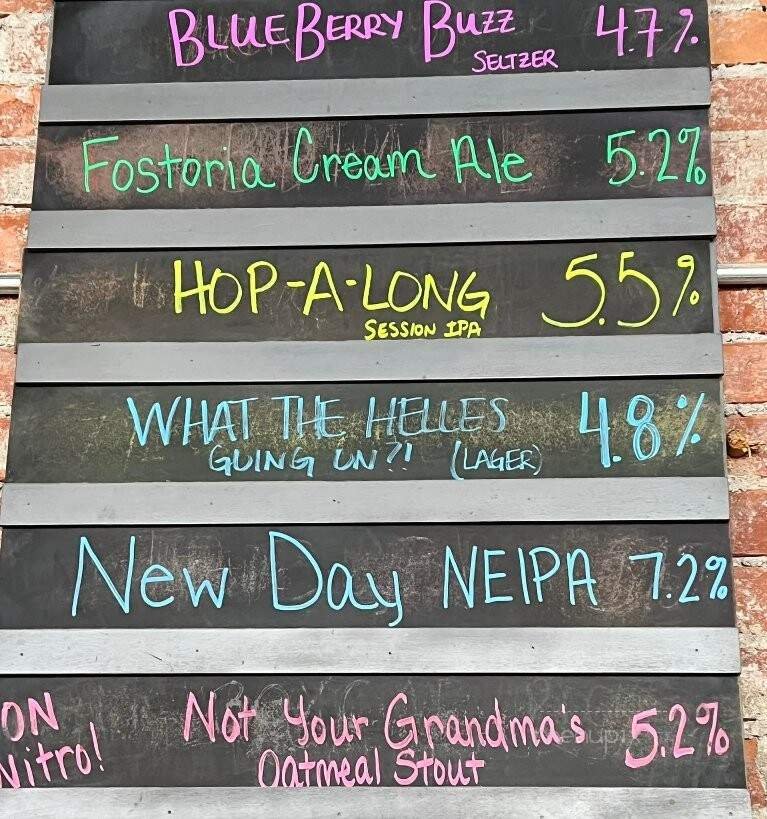 BLUEBERRY BUZZ 4.7%
SELTZER
Fostoria Cream Ale 5.2%
HOP-A-LONG 5.5%
SESSION IPA
WHAT THE HELLES 4.8%
GOING ON?! (LAGER)
New Day NEIPA 7.2%
ON Not Your Grandma's 5.2%
Nitro! Oatmeal Stout